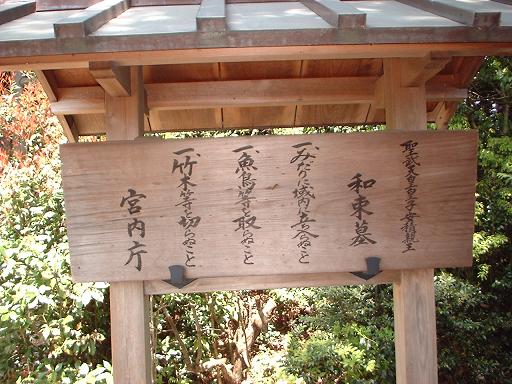 聖武天皇皇子安積親王
和束墓
一、みだりに域内に立入らぬこと
一、魚鳥等を取らぬこと
一、竹木等を切らぬこと
宮内庁